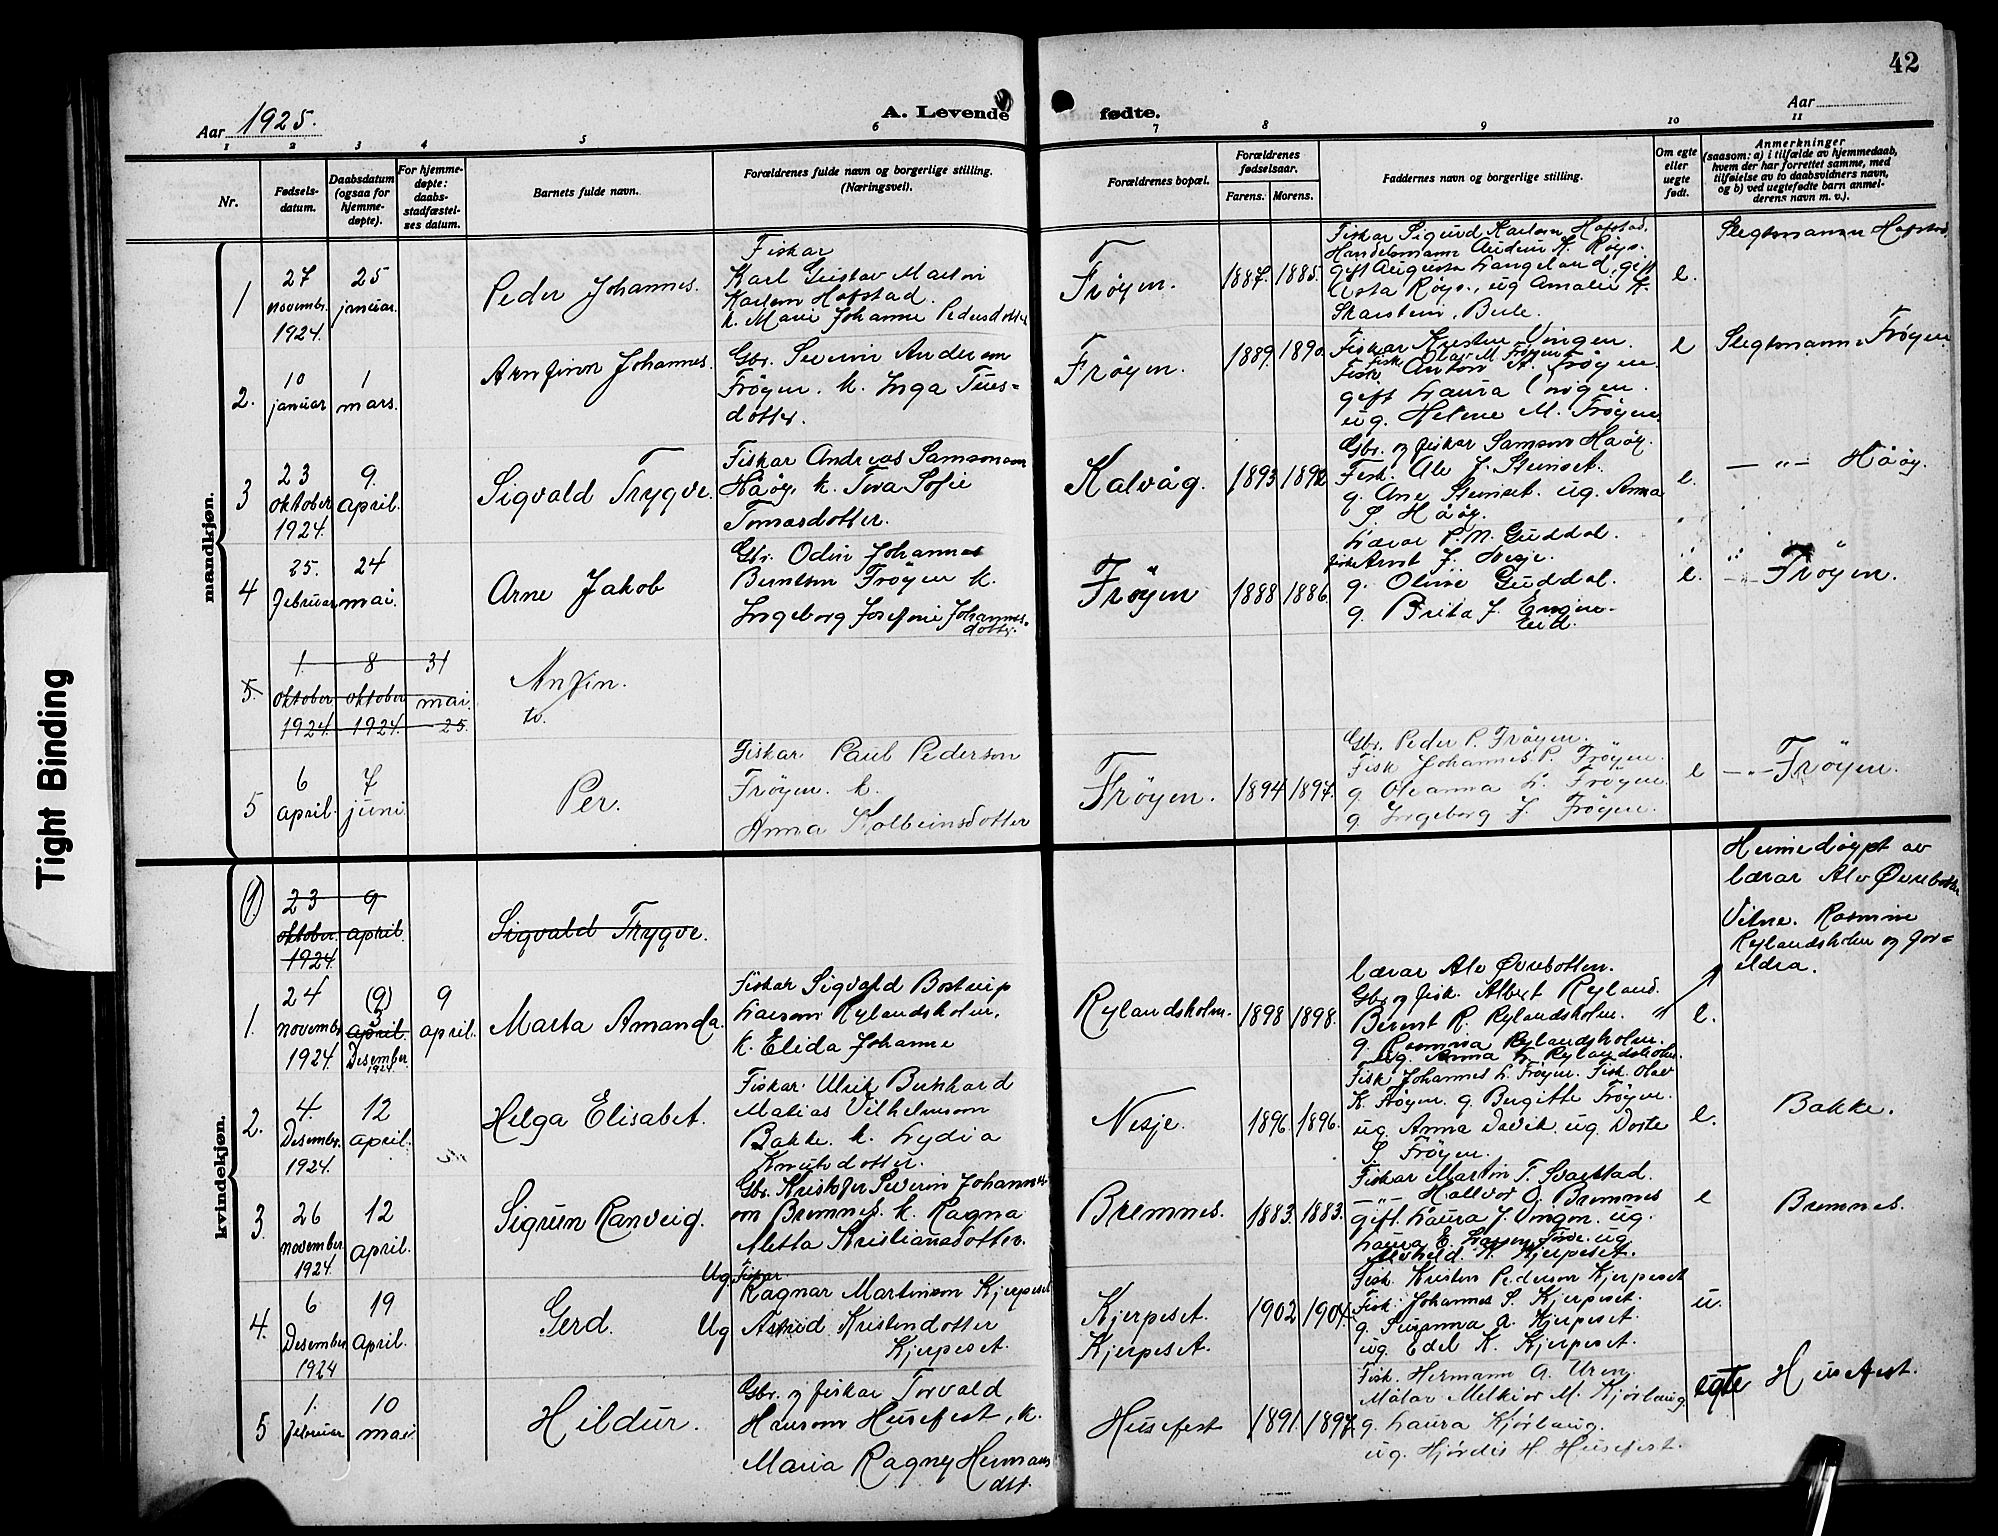 42
Aar 1925.
A. Levende fødte.
Aar
1 2 3 4 5 6 7 8 9 10 11
Nr.
Fødsels-
datum.
Daabsdatum
(ogsaa for
hjemme-
døpte).
For hjemme-
døpte:
daabs-
stadfæstel-
ses datum.
Barnets fulde navn.
Forældrenes fulde navn og borgerlige stilling.
(Næringsvei).
Forældrenes bopæl.
Forældrenes
fødselsaar.
Farens. Morens.
Faddernes navn og borgerlige stilling.
Om egte
eller
uegte
født.
Anmerkninger
(saasom: a) i tilfælde av hjemmedaab,
hvem der har forrettet samme, med
tilføielse av to daabsvidners navn,
og b) ved uegtefødte barn anmel-
derens navn m. v.).
mandkjøn.
1
27
novembr.
1924.
25
januar.
Peder Johannes.
Fiskar
Karl Gustav Martin
Karlson Hofstad.
k. Marie Johanne Pedersdotter
Frøyen.
1887. 1885.
Fiskar Sigurd Karlson Hofstad.
Handelsmann Audun K. Røys.
gift Augusta Langeland, gift
Asta Røys., ug Amalie K.
Skarstein, Berle.
e.
Slegtsnamn Hofstad
2.
10
januar
1
mars.
Arnfinn Johannes.
Gbr. Severin Anderson
Frøyen. k. Inga Tues=
dotter.
Frøyen.
1889. 1890.
Fiskar Kristen Vingen.
Fisk Olav M. Frøyen
Fisk. Anton A. Frøyen.
gift Laura Vingen.
ug. Helene M. Frøyen.
e
Slegtsnamn Frøyen.
3
23
oktober
1924.
9.
april.
Sigvald Trygve.
Fiskar Andreas Samsonson
Håøy. k. Tora Sofie
Tomasdotter.
Kalvåg.
1893 1892
Gbr. og fiskar Samson Håøy.
Fisk. Ale J. Steinset.
g. Ane Steinset. ug. Anna
S. Håøy.
e.
— " — Håøy.
4
25.
februar
24
mai.
Arne Jakob
Gbr. Odin Johannes
Berntson Frøyen k.
Ingeborg Josefine Johannes-
dotter.
Frøyen
1888 1886.
Lærar P. M. Guddal.
fisk Arnt J. Nesje.
g. Oline Guddal.
g. Brita J. Engen-
Eid.
e.
— " — Frøyen.
5.
1.
oktober
1924.
8
oktober
1924.
31
mai.
25.
Anfin.
to.
5
6
april.
7
juni.
Per.
Fiskar Paul Pederson
Frøyen. k.
Anna Kolbeinsdotter
Frøyen.
1894 1897.
Gbr. Peder P. Frøyen.
Fisk Johannes P. Frøyen.
g. Oleanna L. Frøyen.
g. Ingeborg J. Frøyen.
e
— " — Frøyen.
kvindekjøn.
(1)
23
oktober.
1924.
9
april.
Sigvald Trygve.
Heimedøypt av
lærar Alv Øvrebotten
Vitne. Rasmine
Rylandsholm og for=
eldra.
1.
24
november
1924.
(9)
3
april.
Desember.
1924.
9
april.
Marta Amanda.
Fiskar Sigvald Bostrup
Larson Rylandsholm.
k. Elida Johanne
Rylandsholm.
1898 1898.
Lærar Alv Øvrebotten.
Gbr og fisk. Albert Ryland.
Bernt R. Rylandsholm.
g. Rasmina Rylandsholm.
ug. Anna L. Rylandsholm.
e.
2.
4.
Desembr.
1924.
12
april.
Helga Elisabet.
Fiskar Ulrik Bernhard
Matias Vilhelmson
Bakke. k. Lydia
Knutsdotter.
Nesje.
1896. 1896.
Fisk. Johannes L. Frøyen. Fisk. Olav
K. Frøyen. g. Birgitte Frøyen.
ug. Anna Davik. ug. Dorte
S. Frøyen.
e.
Bakke.
3.
26
november
1924.
12
april.
Sigrun Ranveig.
Gbr. Kristofer Severin Johannes-
son Bremnes. k. Ragna
Aletta Kristiansdotter.
Bremnes.
1883. 1883.
Fiskar Martin T. Svarstad.
— " — Hallvor O. Bremnes
gift. Laura J. Vingen. ug.
Laura E. Larsen Førde. ug.
Alvhild K. Kjerpeset.
e
Bremnes.
4.
6
Desember
1924
19
april.
Gerd.
Ug Fiskar
Ragnar Martinson Kjerpeset
Ug Astrid Kristendotter
Kjerpeset.
Kjerpeset.
Kjerpeset.
1902 1904.
Fisk. Kristen Pederson Kjerpeset
Fisk. Johannes S. Kjerpeset.
g. Susanna A. Kjerpeset.
ug. Edel K. Kjerpeset.
u.
5
1.
februar
10
mai.
Hildur.
Gbr. og fiskar Torvald
Hanson Husefest, k.
Maria Ragney Hermans
dtt.
Husefest
1891. 1897.
Fisk. Hermann A. Uren.
Målar Melkior M. Kjørlaug
g. Laura Kjørlaug.
ug. Hjørdis H. Husefest.
egte
Husefest.
Tight Binding